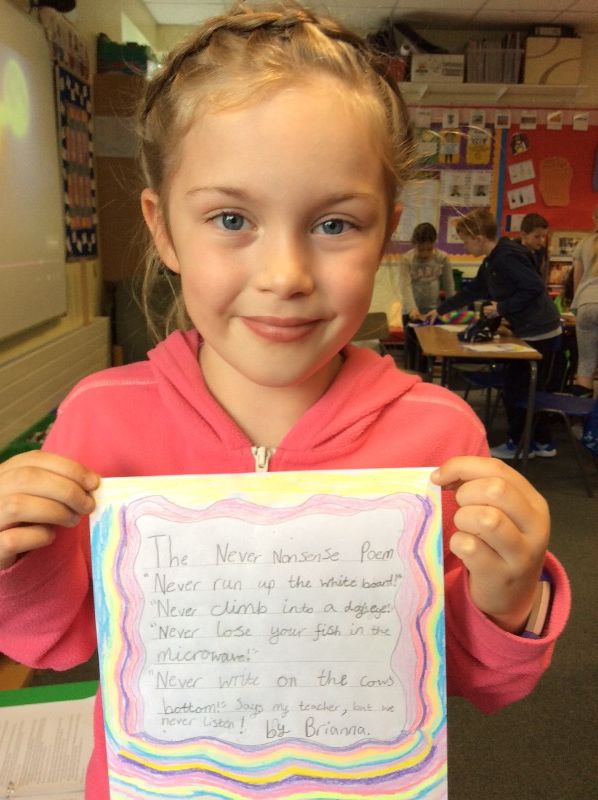 The Never Nonsense Poem
"Never run up the white board!"
"Never climb into a dogs eye!"
"Never lose your fish in the
microwave!"
"Never write on the cows
bottom!" Says my teacher, but we
never listen! by Brianna.